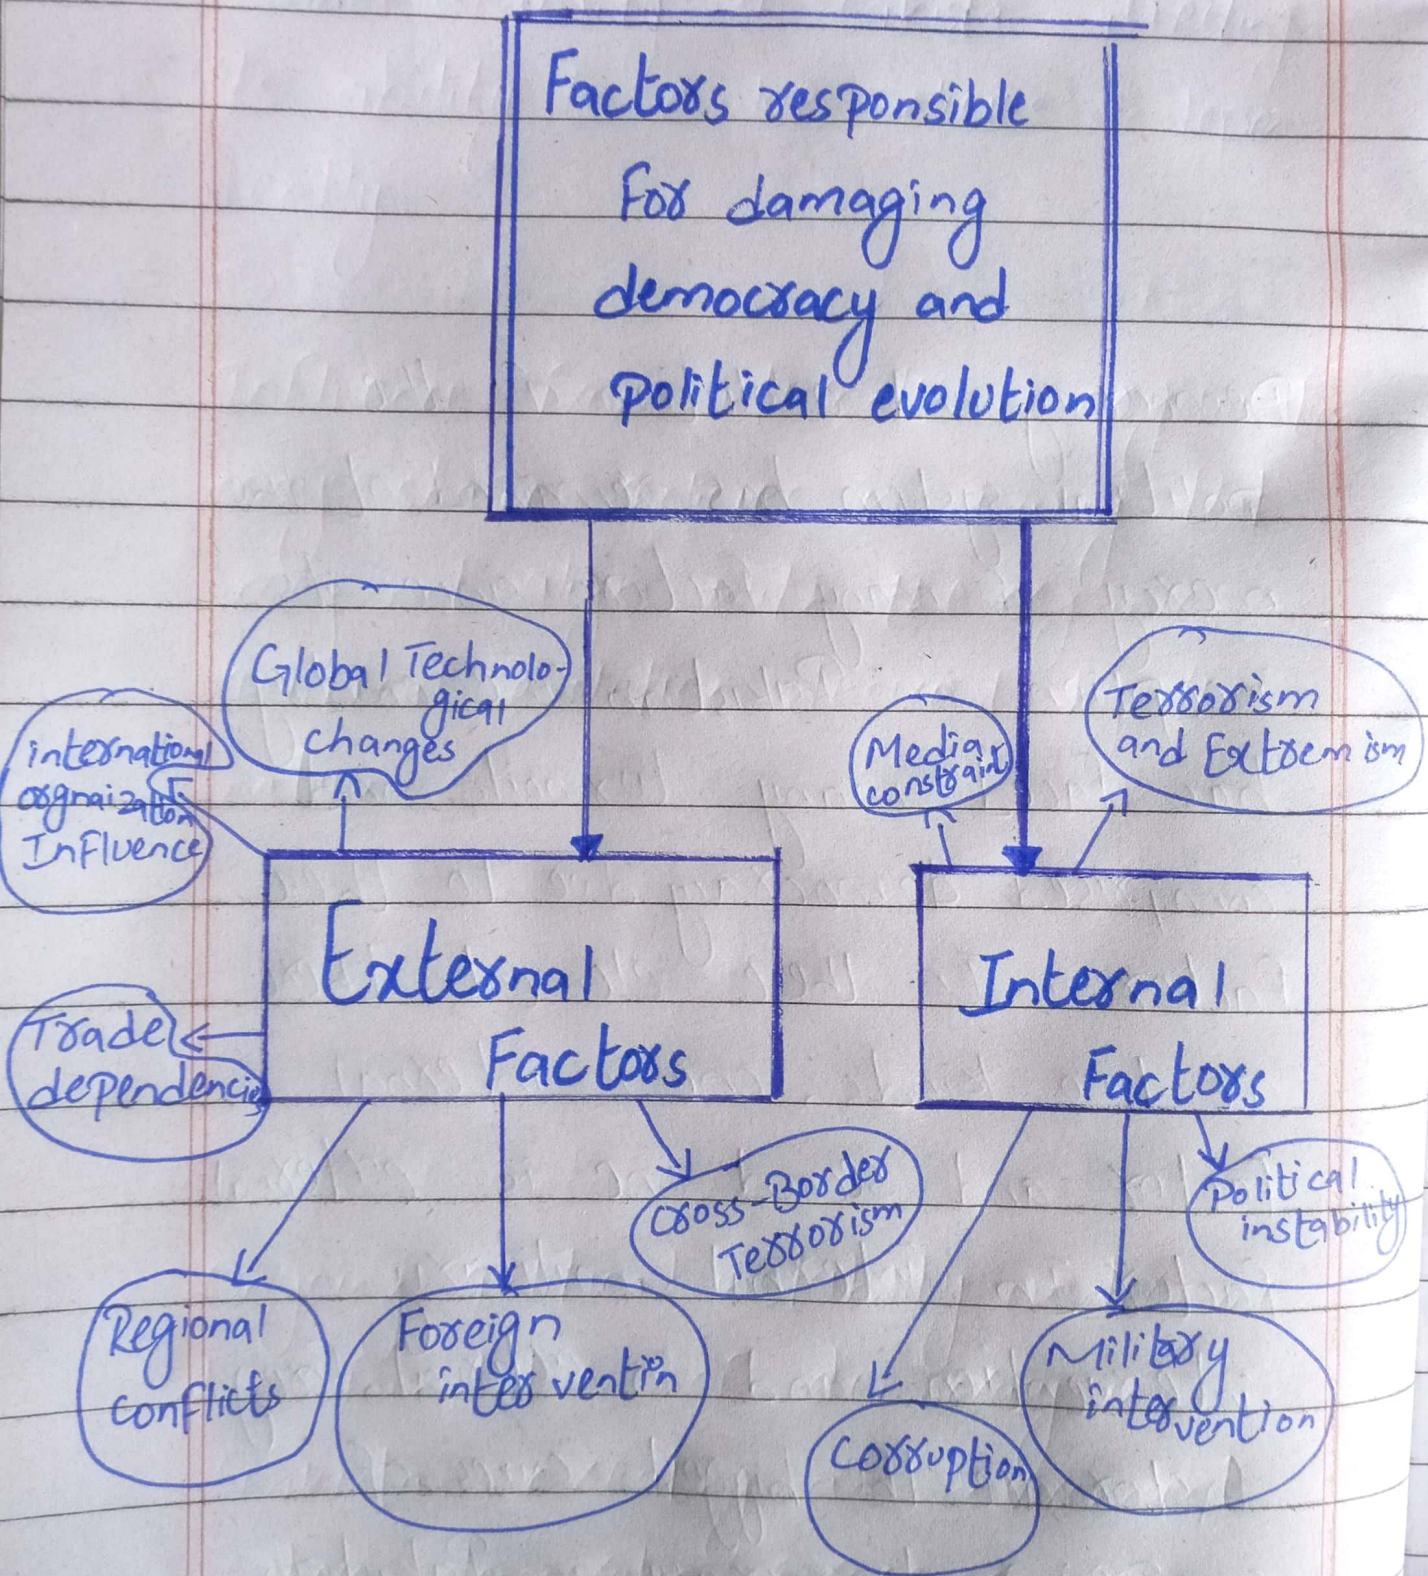 Factors responsible
For damaging
democracy and
political evolution
Global Technolo-
gical
changes
international
orgnaization
Influence
Media
constraint
Terrorism
and Extremism
External
Factors
Internal
Factors
Trade
dependencies
Cross-Border
Terrorism
Political
instability
Regional
conflicts
Foreign
interventin
Military
intervention
Corruption